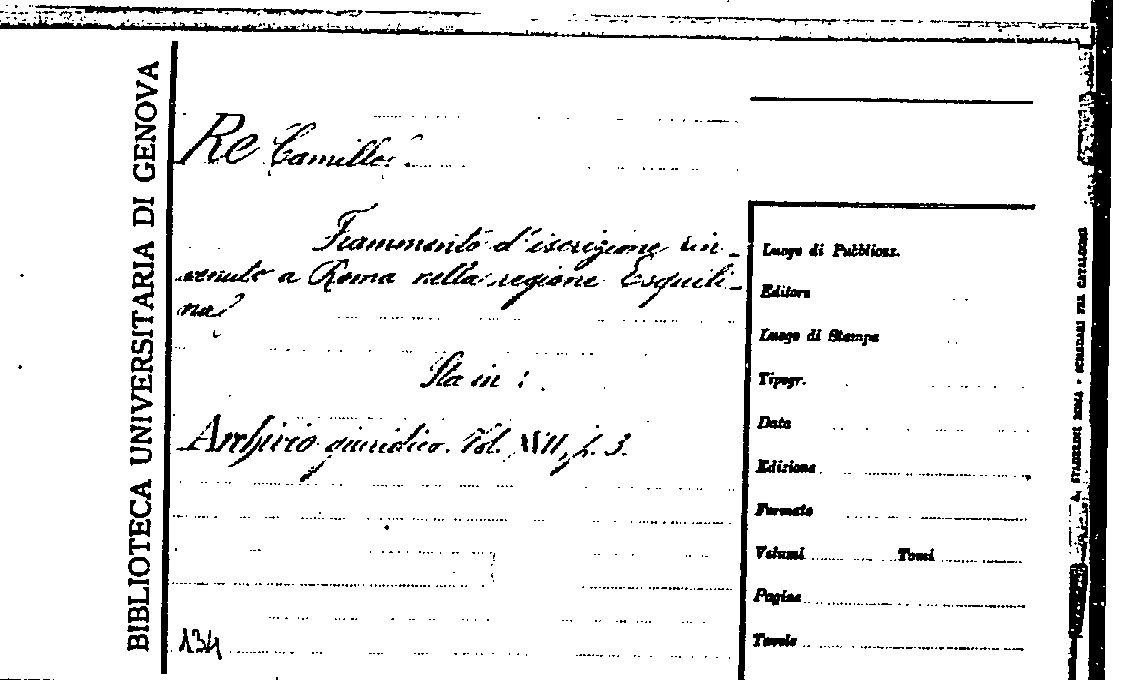 BIBLIOTECA UNIVERSITARIA DI GENOVA
Re Camillo.
Frammento d'iscrizione rin-
venuto a Roma nella regione Esquili-
na
Sta in :
Archivio giuridico. Vol. f. 3.
134
Luogo di Pubblicaz.
Editore
Luogo di Stampa
Tipogr.
Data
Edizione
Formato
Volumi Tomi
Pagine
Tavole
A. STADERINI ROMA - SCHEDARI PER CATALOGHI